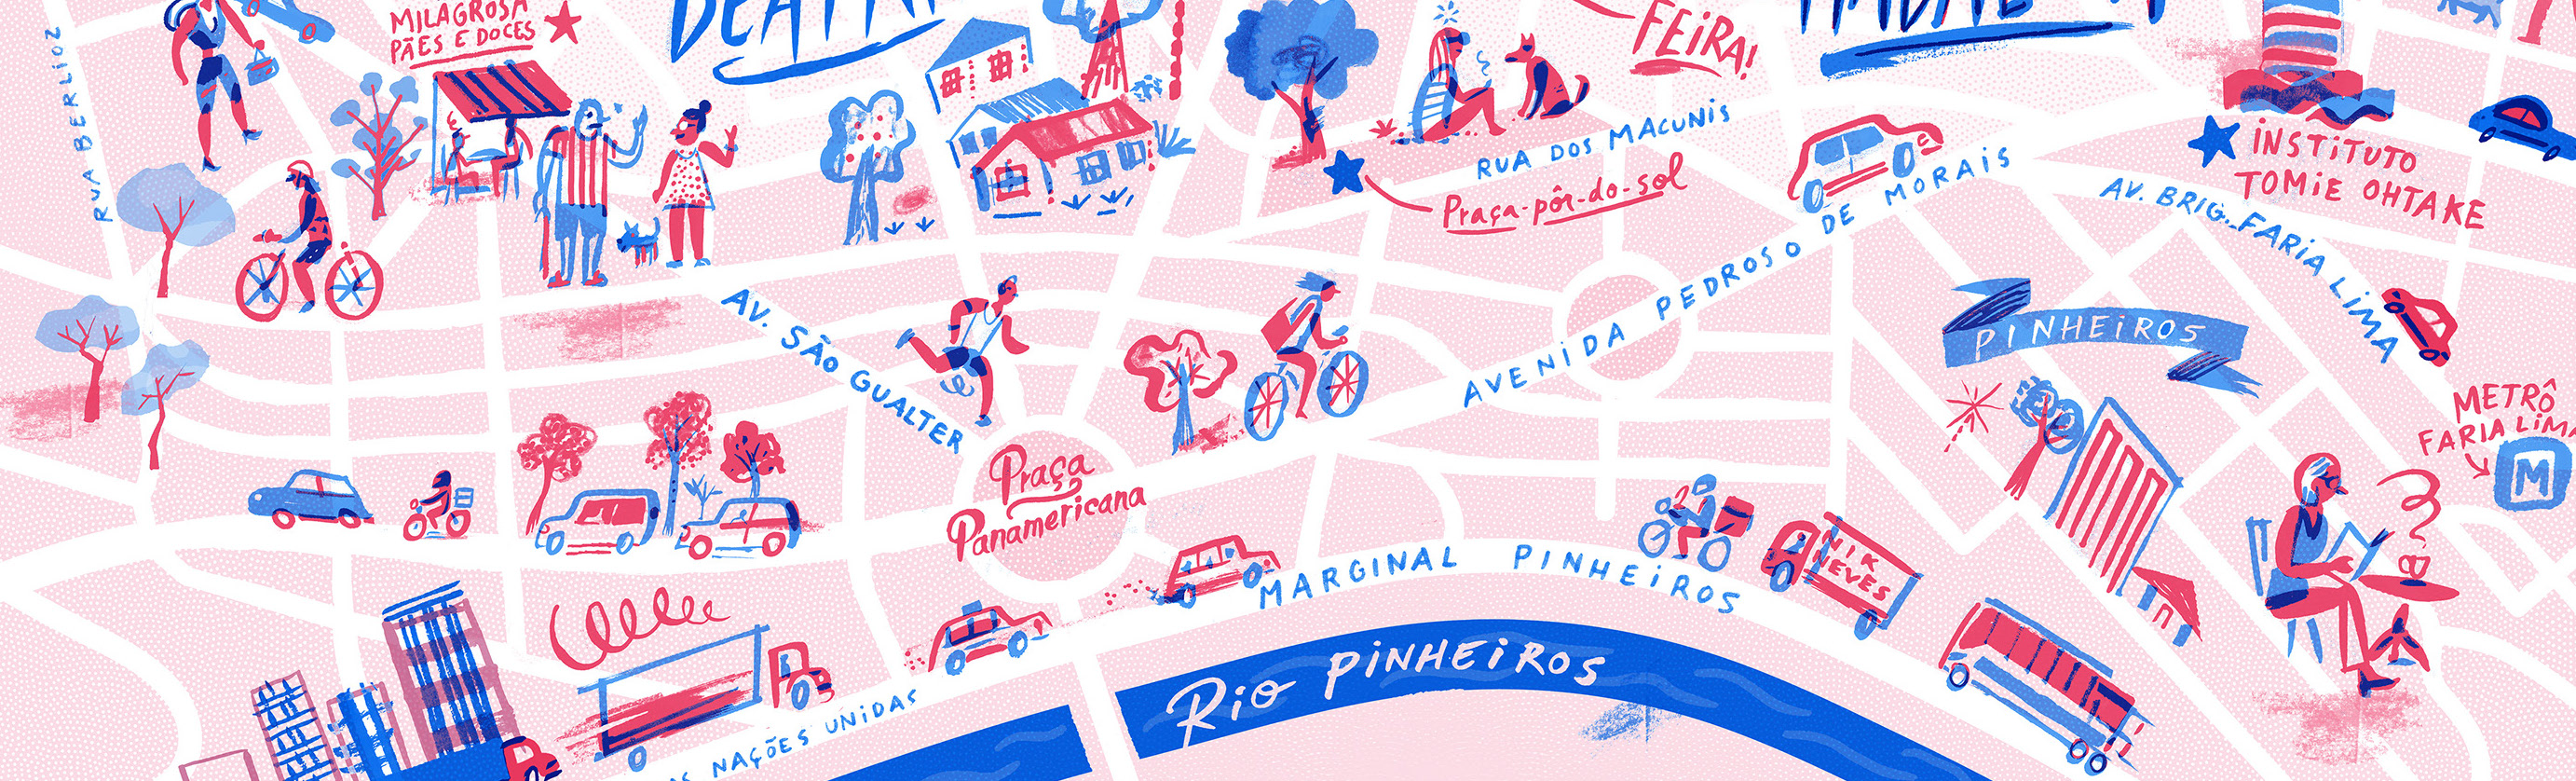 MILAGROSA
PÃES E DOCES
FEIRA!
RUA BERLIOZ
RUA DOS MACUNIS
Praça-pôr-do-sol
INSTITUTO
TOMIE OHTAKE
AV. BRIG. FARIA LIMA
AVENIDA PEDROSO DE MORAIS
AV. SÃO GUALTER
PINHEIROS
METRÔ
FARIA LIMA
M
Praça
Panamericana
MARGINAL PINHEIROS
NIK
NEVES
Rio PINHEIROS
NAÇÕES UNIDAS